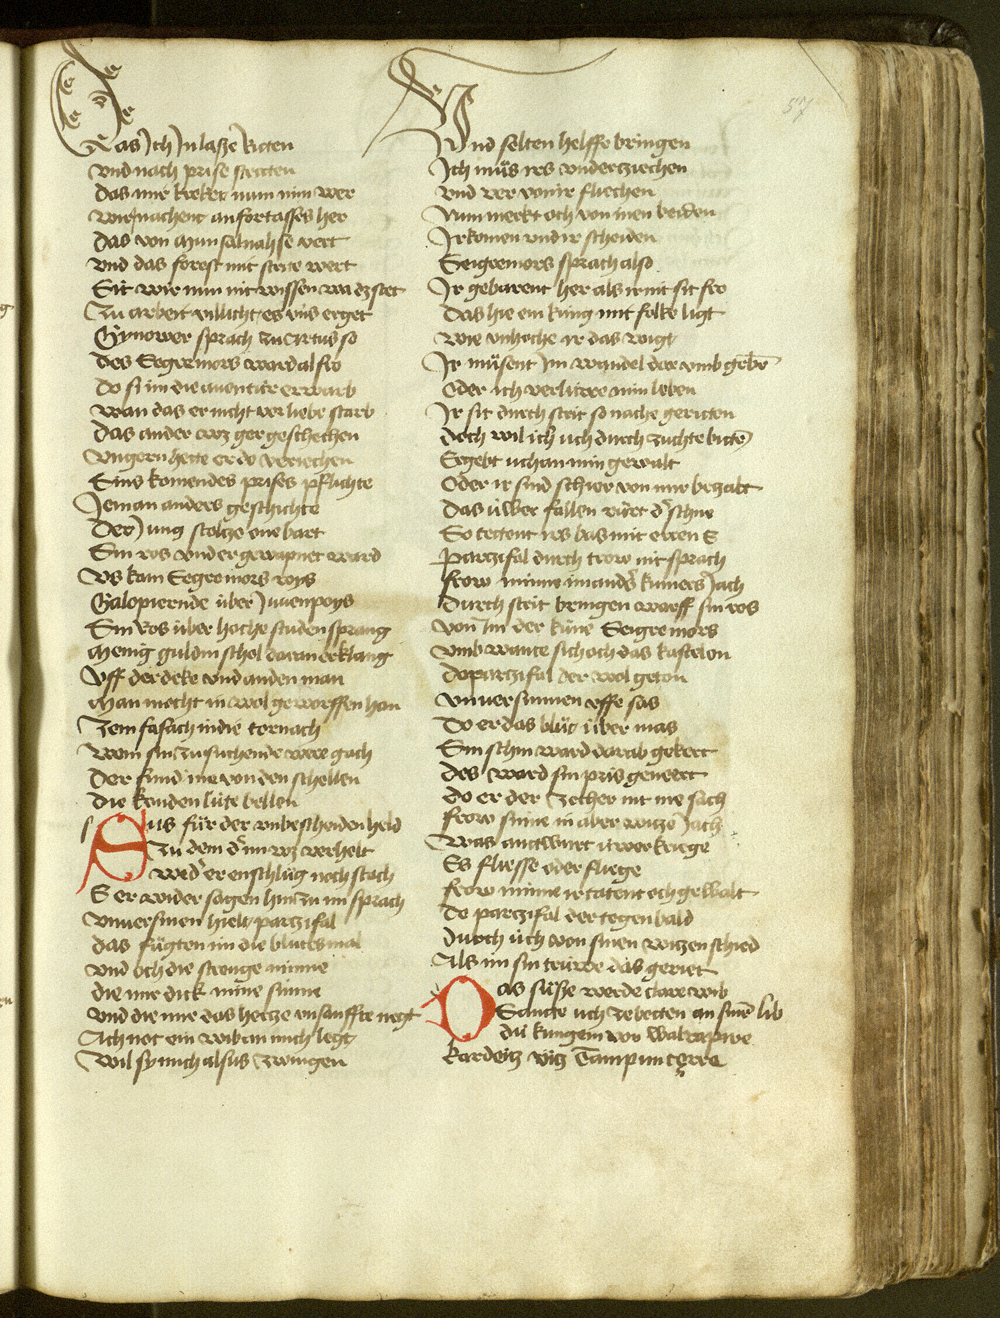 Das ich In lasze Riten
vnd nach prise striten
das mir kreket nun nim wer
wir nachent anfortasses her
das von Munsaluahse vert
vnd das forest mit strite wert
Sit wir nun nit wissen wa dz stet
Zu arbeit villicht es vns erget
Gynower sprach zu artus so
des Segremors ward al fro
do si im die auentúr erwarb
wan das er nicht vor liebe starb
das ander wz gar geschechen
vngern hette er do veriechen
Eins komendes prises pflichte
Jeman anders geschichte
Der Jung stoltze one bart
Sin ros vnd er gewapnet ward
Vs kam Segremors roys
Galopiernde über Juuenpoys
Sin Ros über hoche studen sprang
Menig guldin schel daran erklang
Vff der deke vnd an den man
Man mocht in wol geworffen han
Zem fasach in die tornach
Wem sin zu suchende were gach
Der fund Ine von den schellen
Die konden lúte bellen
Sus für der vnbescheiden held
Zu dem d' im wz verhelt
wed' er enschlúg noch stach
E er wider sagen hin zu im sprach
Vnuersinen hielt parczifal
das fügten im die blutes mal
vnd och die strenge minne
die mir dick mine sinne
vnd die mir das hertze vnsanffte negt
Ach not ein wib an mich legt
Wil sy mich alsus zwingen
Vnd selten helffe bringen
Ich müs irs vndertziechen
vnd ver von ir fliechen
Nun merkt och von inen beiden
Ir komen vnd ir scheiden
Seigremors sprach also
Ir gebarent her als ir nit sit fro
das hie ein küng mit folke ligt
wie vnhoche ir das wigt
Ir müsent Im wandel dar vmb geben
Oder ich verlúre min leben
Ir sit durch strit so nache geritten
doch wil ich uch durch zuchte bitten
Ergebt uch an min gewalt
Oder ir sind schier von mir bezalt
das úwer fallen rürt d' schne
So tetent irs bas mit eren E
Parczifal durch trow nit sprach
frow minne im anders kumers Jach
durch strit bringen warff sin ros
von Im der küne Seigremors
vmb wante sich och das kastelon
do parczifal der wol geton
vnuersunnen vffe sas
do er das blüt über mas
Sin schin ward darab gekert
des ward sin pris gemert
do er der Zecher nit me sach
frow sinne in aber witze Jach
Was antwurt úwer kriege
Es fliesse oder fliege
frow minne ir tatent och gewalt
do parczifal der tegen bald
durch úch von sinen witzen schied
Als im sin trúwe das geriet
Das süsze werde clare wib
Sante uch zebotten an sinen lib
dú kungein von Walrapive
Kardeitz viz Tampuntęrre